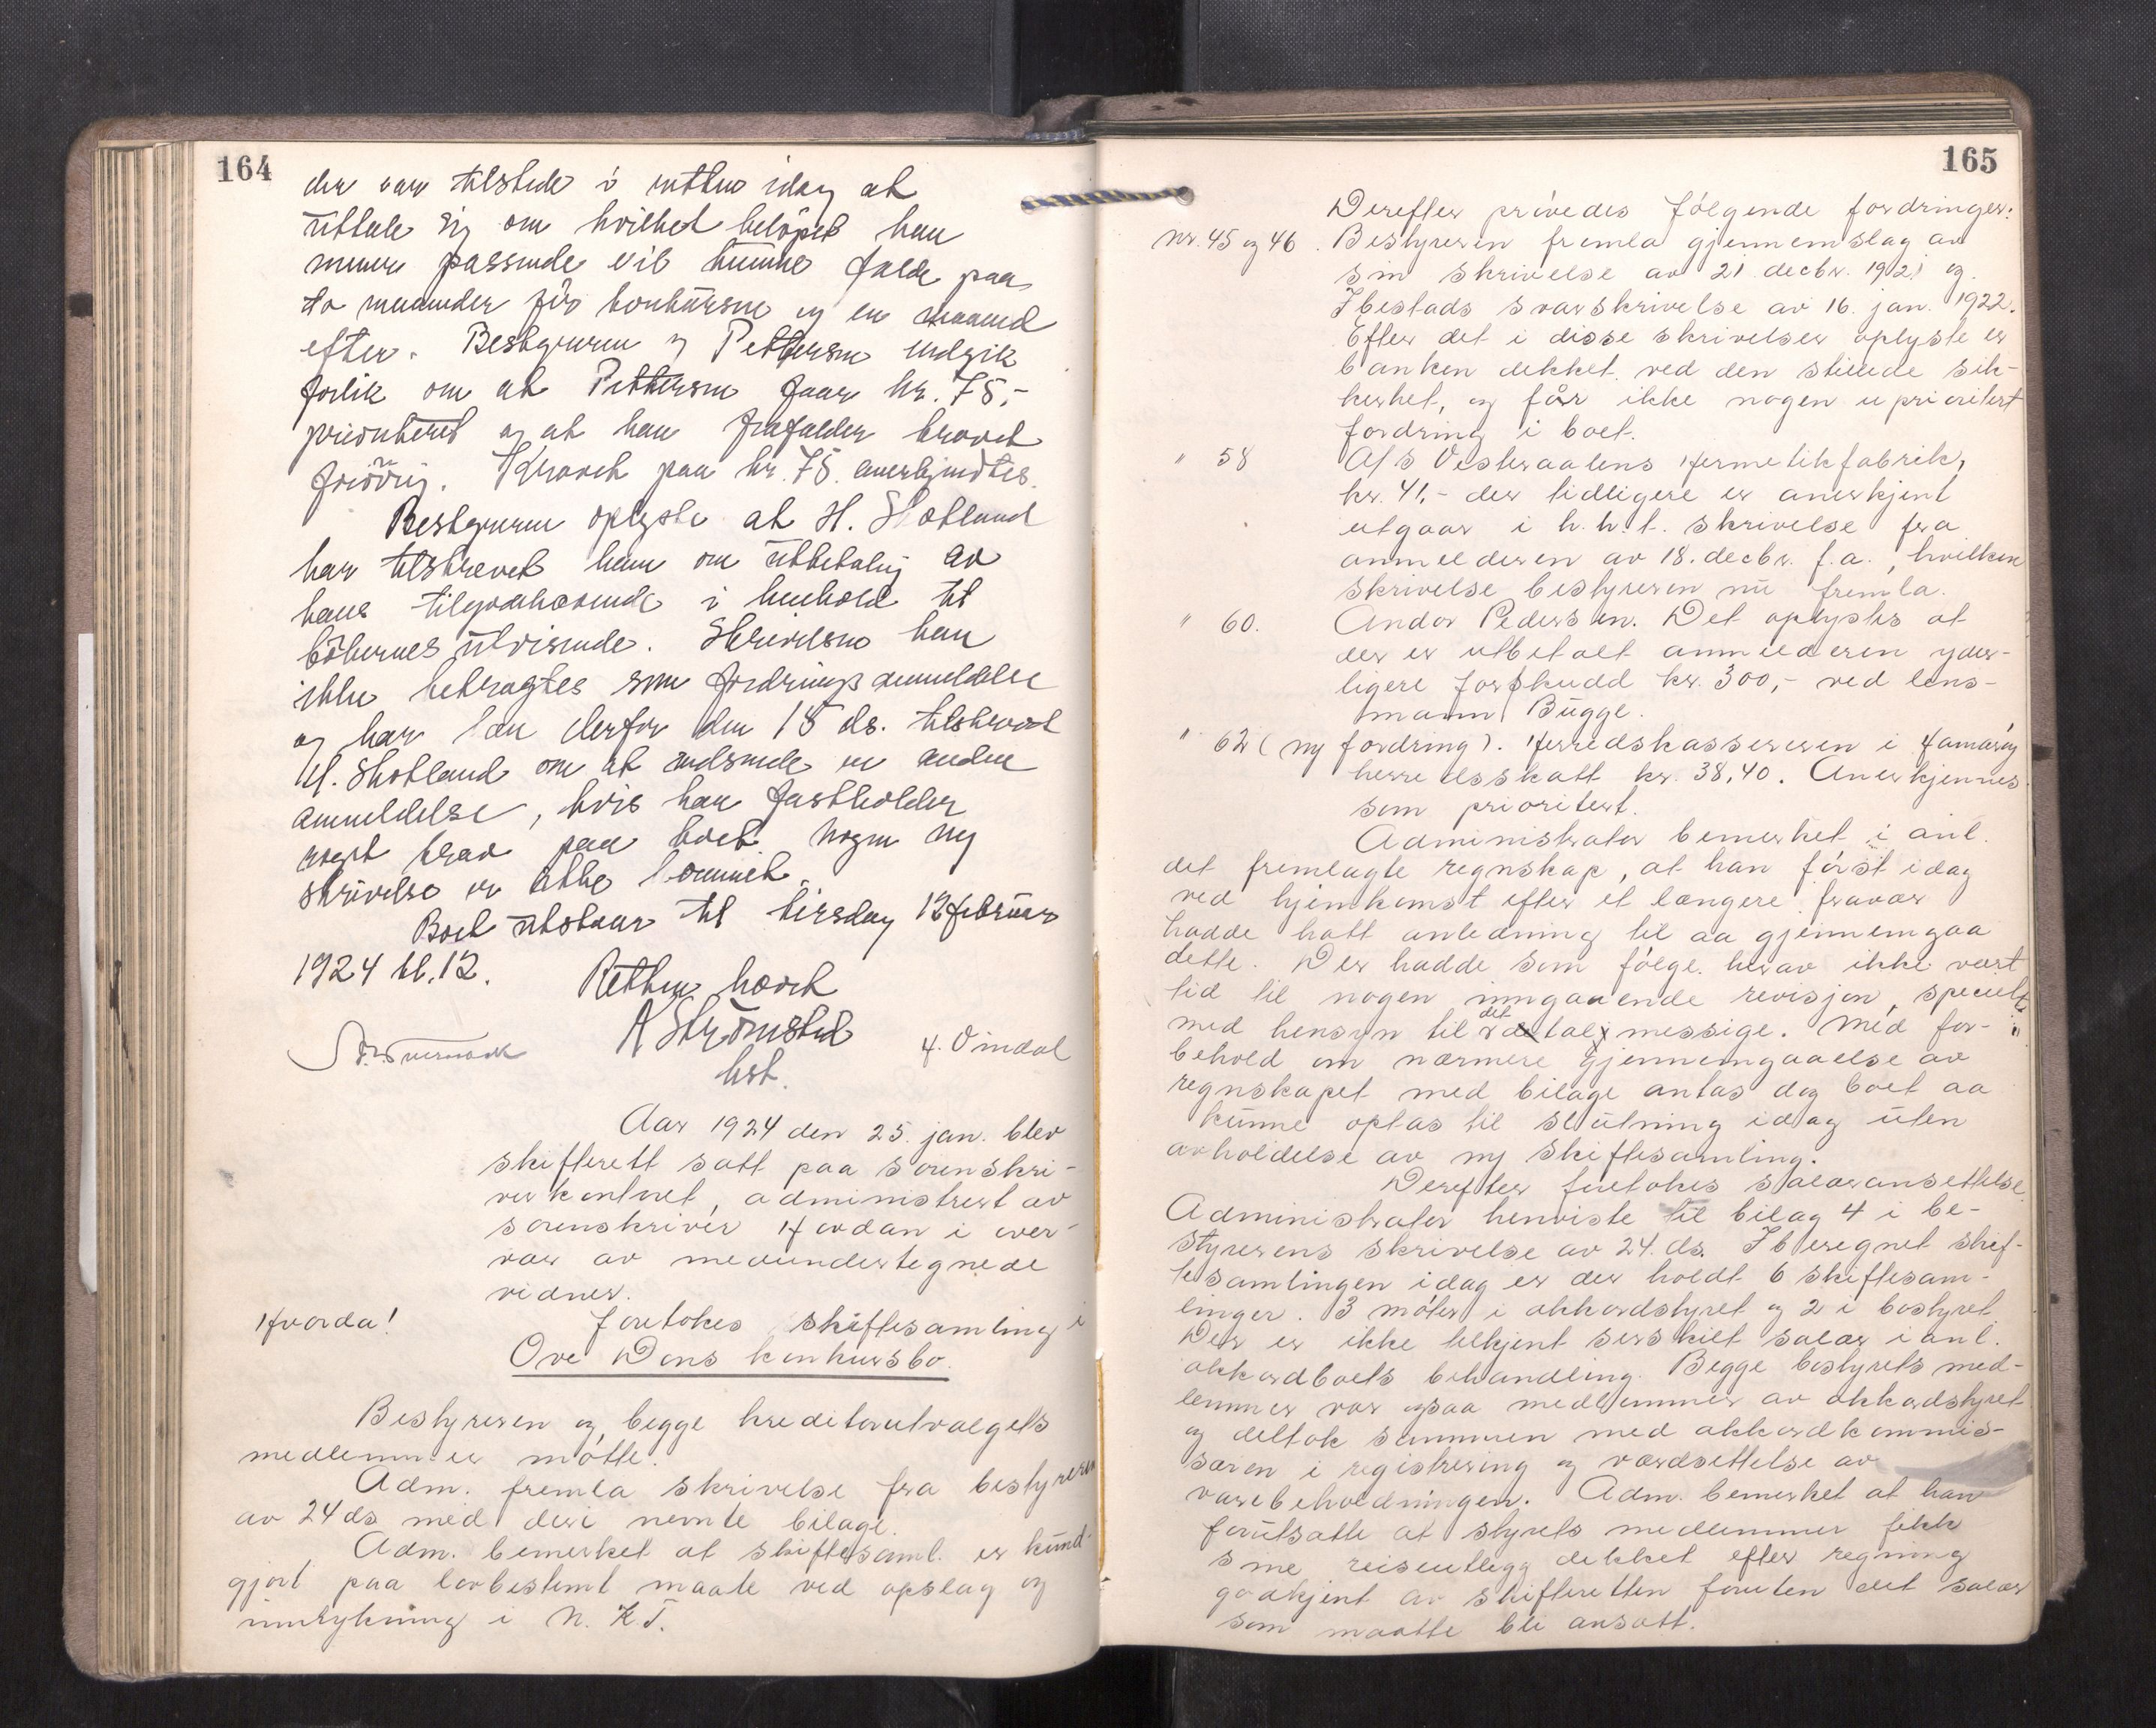 164
der var tilstede i retten idag at
uttale sig om hvilket beløp han
mener passende vil kunne falde paa
to maaneder før konkursen og en maaned
efter. Bestyreren og Pettersen indgik
forlik om at Pettersen faar kr. 75,-
prioritert og at han frafalder kravet
forøvrig. Kravet paa kr. 75. anerkjendtes.
Bestyreren oplyste at H. Skotland
har tilskrevet ham om utbetaling av
hans tilgodehavende i henhold til
bøkernes utvisende. Skrivelsen kan
ikke betragtes som fordringsanmeldelse
og har han derfor den 15 ds. tilskrevet
H. Skotland om at indsende en anden
anmeldelse, hvis han fastholder
noget krav paa boet. Nogen ny
skrivelse er ikke kommet.
Boet utstaar til tirsdag 12 februar
1924 kl. 12.
Retten hævet
A Strømsted
kst.
H. Vindal
Aar 1924 den 25. jan. blev
skifterett satt paa sorenskri-
verkontoret, administrert av
sorenskriver Hordan i over-
vær av medundertegnede
vidner.
Hvorda!
Foretokes skiftesamling i
Ove Dons konkursbo.
Bestyreren og begge kreditorutvalgets
medlemmer møtte.
Adm. fremla skrivelse fra bestyreren
av 24 ds med deri nevnte bilage.
Adm. bemerket at skiftesaml. er kund-
gjort paa lovbestemt maate ved opslag og
innrykning i N. K.T.
165
Derefter prøvedes følgende fordringer:
Nr. 45 og 46. Bestyreren fremla gjennemslag av
sin skrivelse av 21 decbr. 1921 og
Ibestads svarskrivelse av 16. jan. 1922.
Efter det i disse skrivelser oplyste er
banken dekket ved den stillede sik-
kerhet, og får ikke nogen uprioritert
fordring i boet.
" 58 A/S Vesteraalens Hermetikfabrik,
kr. 41,- der tidligere er anerkjent
utgaar i h.h.t. skrivelse fra
anmelderen av 18. decbr. f.a., hvilken
skrivelse bestyreren nu fremla.
" 60. Andor Pedersen. Det oplystes at
der er utbetalt anmelderen yder-
ligere forskudd kr. 300,- ved lens-
mann Bugge.
" 62 (ny fordring). Herredskassereren i Hamarøy
herredsskatt kr. 38,40. Anerkjennes
som prioritert.
Administrator bemerket i anl.
det fremlagte regnskap, at han først idag
ved hjemkomst efter et længere fravær
hadde hatt anledning til aa gjennemgaa
dette. Der hadde som følge herav ikke vært
tid til nogen inngaaende revisjon, specielt
med hensyn til det talmessige. Med for-
behold om nærmere gjennemgaaelse av
regnskapet med bilage antas dog boet aa
kunne optas til slutning idag uten
avholdelse av ny skiftesamling.
Derefter foretokes salæransettelse.
Administrator henviste til bilag 4 i be-
styrerens skrivelse av 24. ds. Iberegnet skif-
tesamlingen idag er der holdt 6 skiftesam-
linger. 3 møter i akkordstyret og 2 i bostyret.
Der er ikke tilkjent særskilt salær i anl.
akkordboets behandling. Begge bostyrets med-
lemmer var ogsaa medlemmer av akkordstyret
og deltok sammen med akkordkommis-
særen i registrering og værdsettelse av
varebeholdningen. Adm. bemerket at han
forutsatte at styrets medlemmer fikk
sine reiseutlegg dekket efter regning
godkjent av skifteretten foruten det salær
som maatte bli ansatt.